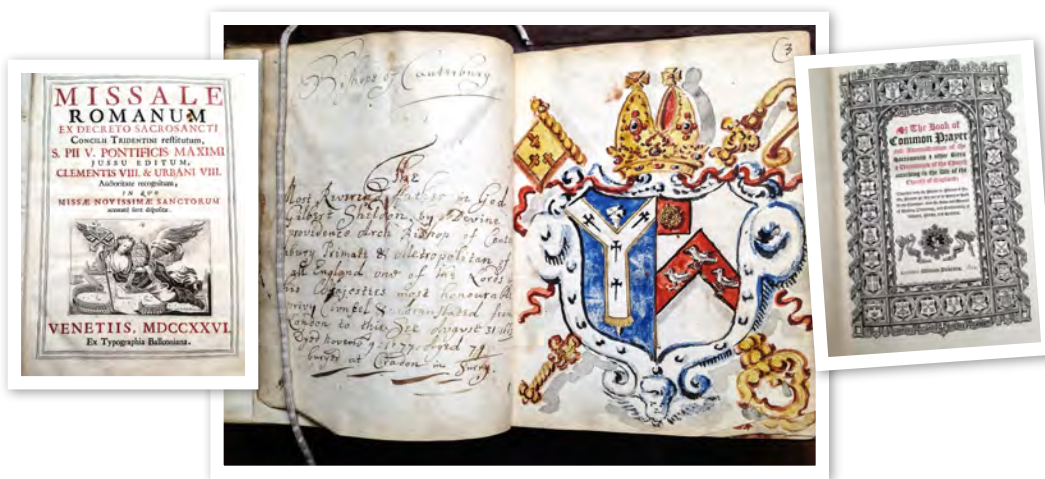 MISSALE
ROMANUM
EX DECRETO SACROSANCTI
CONCILII TRIDENTINI restitutum,
S. PII V. PONTIFICIS MAXIMI
JUSSU EDITUM,
CLEMENTIS VIII. & URBANI VIII.
Auctoritate recognitum,
IN QUO
MISSÆ NOVISSIMÆ SANCTORUM
accuratè sunt dispositæ.
VENETIIS, MDCCXXVI.
Ex Typographia Balleoniana.
Bishops of Canterbury
The
Most Reverend Father in God
Gilbert Sheldon, by Devine
providence Arch Bishop of Cante
bury Primate & Metropolitan of
all England one of the Lords of
his Majesties most honourable
privy Councel & translated from
London to this See August 31
Dyed November 9: 1677. Aged 79
buryed at Croydon in Surry.
3
The Book of
Common Prayer
and Administration of the
Sacraments & other Rites
& Ceremonies of the Church
according to the Use of the
Church of England;